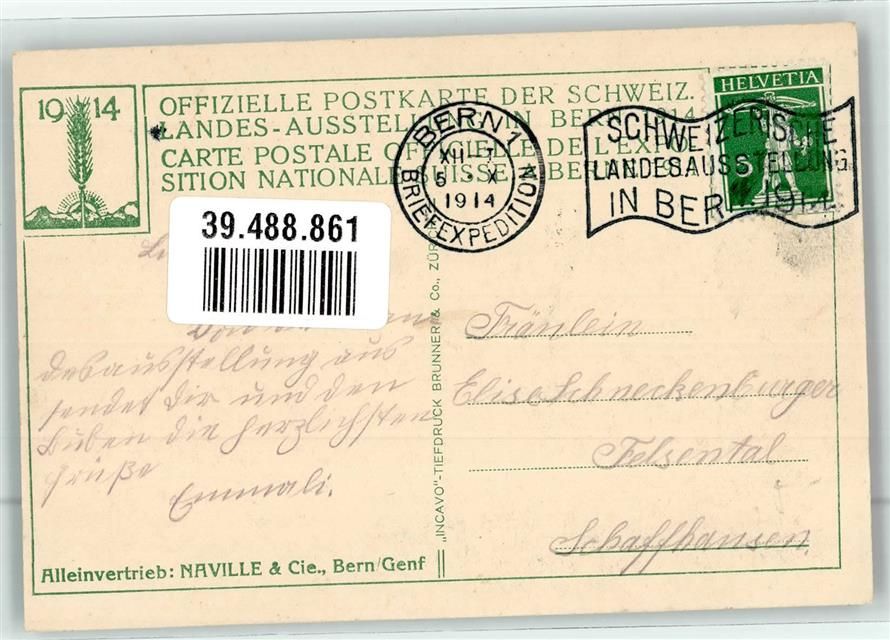 1914
OFFIZIELLE POSTKARTE DER SCHWEIZ.
LANDES-AUSSTELLUNG IN BERN 1914
CARTE POSTALE OFFICIELLE DE L'EXPO-
SITION NATIONALE SUISSE À BERNE 1914
HELVETIA
5
BERN 1
XII-7
5 X
1914
BRIEFEXPEDITION
SCHWEIZERISCHE
LANDESAUSSTELLUNG
IN BERN 1914
39.488.861
desausstellung aus
sendet dir und den
Buben die herzlichsten
Grüße
Emmali.
Fräulein
Elise Schneckenburger
Felsental
Schaffhausen
„INCAVO"-TIEFDRUCK BRUNNER & Co., ZÜR
Alleinvertrieb: NAVILLE & Cie., Bern/Genf